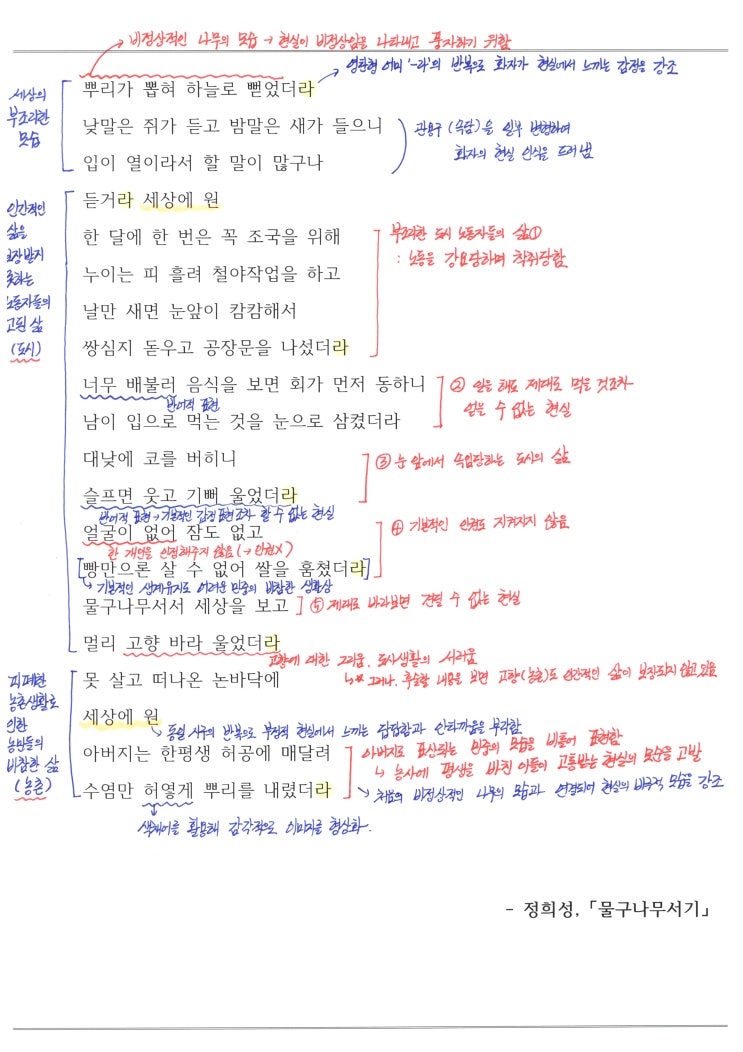 비정상적인 나무의 모습 → 현실이 비정상임을 나타내고 풍자하기 위함
뿌리가 뽑혀 하늘로 뻗었더라
영탄형 어미 '-라'의 반복으로 화자가 현실에서 느끼는 감정을 강조
세상의
부조리한
모습
낮말은 쥐가 듣고 밤말은 새가 들으니
관용구 (속담)을 일부 변형하여
화자의 현실 인식을 드러냄
입이 열이라서 할 말이 많구나
듣거라 세상에 원
인간적인
삶을
보장받지
못하는
노동자들의
고된 삶
(도시)
한 달에 한 번은 꼭 조국을 위해
누이는 피 흘려 철야작업을 하고
날만 새면 눈앞이 캄캄해서
쌍심지 돋우고 공장문을 나섰더라
부조리한 도시 노동자들의 삶①
: 노동을 강요당하며 착취당함
너무 배불러 음식을 보면 회가 먼저 동하니
반어적 표현
남이 입으로 먹는 것을 눈으로 삼켰더라
② 일을 해도 제대로 먹을 것조차
얻을 수 없는 현실
대낮에 코를 버히니
③ 눈 앞에서 속임당하는 도시의 삶
슬프면 웃고 기뻐 울었더라
반어적 표현 → 기본적인 감정표현조차 할 수 없는 현실
얼굴이 없어 잠도 없고
④ 기본적인 인권도 지켜지지 않음
한 개인을 인정해주지 않음 (→ 인권X)
[빵만으론 살 수 없어 쌀을 훔쳤더라]
기본적인 생계유지도 어려운 민중의 비참한 생활상
물구나무서서 세상을 보고
⑤ 제대로 바라보면 견딜 수 없는 현실
멀리 고향 바라 울었더라
고향에 대한 그리움, 도시생활의 서러움
* 그러나, 후술할 내용을 보면 고향(농촌)도 인간적인 삶이 보장되지 않고 있음
피폐한
농촌생활로
인한
농민들의
비참한 삶
(농촌)
못 살고 떠나온 논바닥에
세상에 원
동일 시구의 반복으로 부정적 현실에서 느끼는 답답함과 안타까움을 부각함
아버지는 한평생 허공에 매달려
수염만 허옇게 뿌리를 내렸더라
아버지로 표상되는 민중의 모습을 비틀어 표현함
농사에 평생을 바친 이들이 고통받는 현실의 모순을 고발
처음의 비정상적인 나무의 모습과 연결되어 현실의 비극적 모습을 강조
색채어를 활용해 감각적으로 이미지를 형상화.
– 정희성, 「물구나무서기」